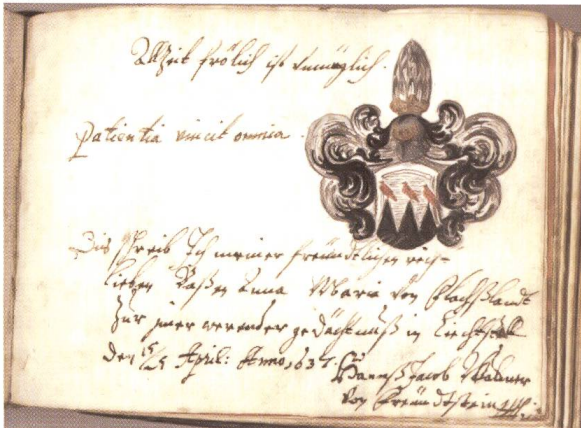 Allzeit frölich ist unmüglich.
Patientia vincit omnia.
Dis schreib Ich meiner freündtlichen viel
lieben Baßen Anna Maria von Flachßlandt
Zur immer werender gedächtnuß in Liechtstall
den 15/25 April: Anno 1637.
Hannß Jacob Waldner
von Freündtstein